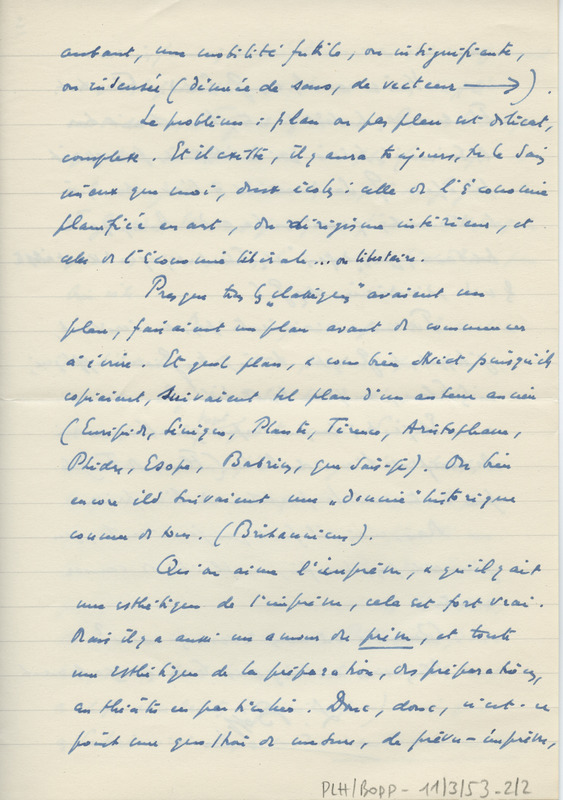 autant, une mobilité futile, ou insignifiante,
ou insensée (dénuée de sens, de vecteur ⟶).
Le problème : plan ou pas plan est délicat,
complexe. Et il existe, il y aura toujours, tu le sais
mieux que moi, deux écoles : celle de l'Économie
planifiée en art, du dirigisme intérieur, et
celle de l'Économie libérale... ou libertaire.
Presque tous les „classiques" avaient un
plan, faisaient un plan avant de commencer
à écrire. Et quel plan, ô combien strict puisqu'ils
copiaient, suivaient tel plan d'un auteur ancien
(Euripide, Sénèque, Plaute, Térence, Aristophane,
Phèdre, Esope, Babrius, que sais-je). Ou bien
encore ils suivaient une „donnée" historique
connue de tous. (Britannicus).
Qu'on aime l'imprévu, et qu'il y ait
une esthétique de l'imprévu, cela est fort vrai.
Mais il y a aussi un amour du prévu, et toute
une esthétique de la préparation, des préparations,
au théâtre en particulier. Donc, donc, n'est-ce
point une question de mesure, de prévu-imprévu,
PLH/BOPP - 11/3/53 - 2/2